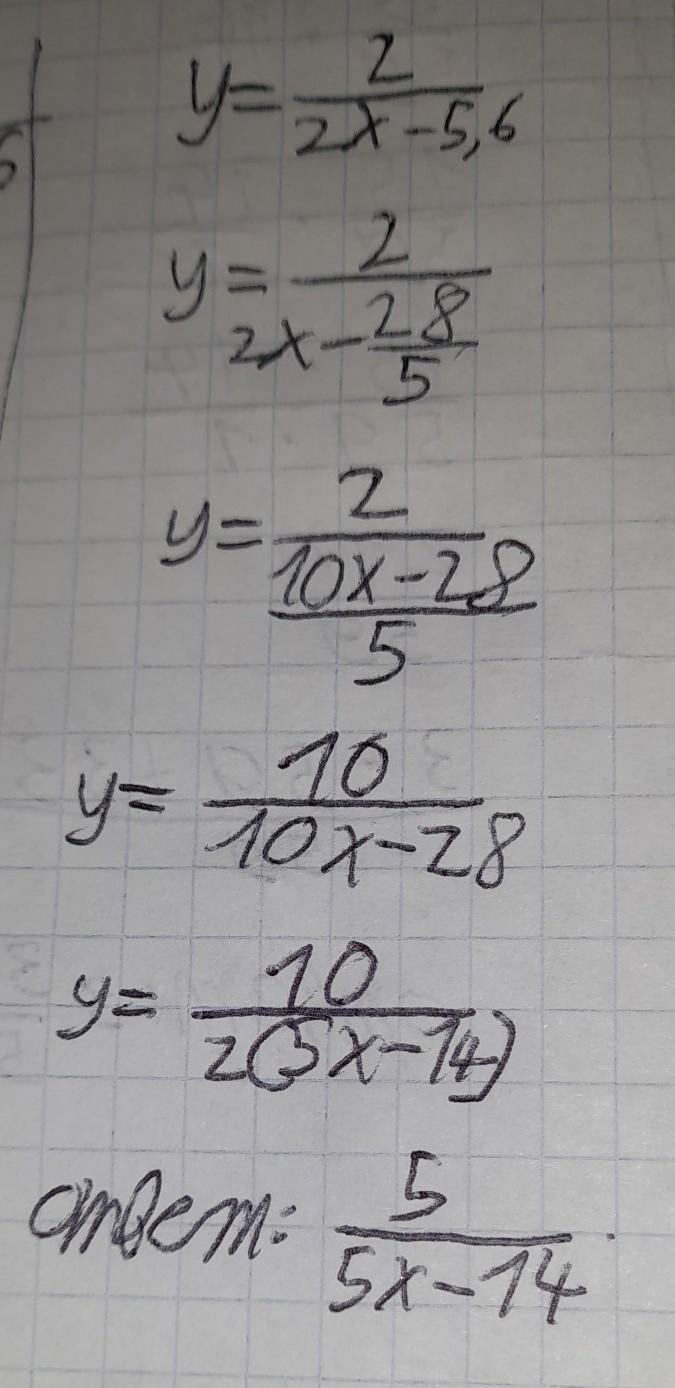 y = 2/(2x - 5,6)
y = 2/(2x - 28/5)
y = 2/((10x - 28)/5)
y = 10/(10x - 28)
y = 10/(2(5x - 14))
ответ: 5/(5x - 14)